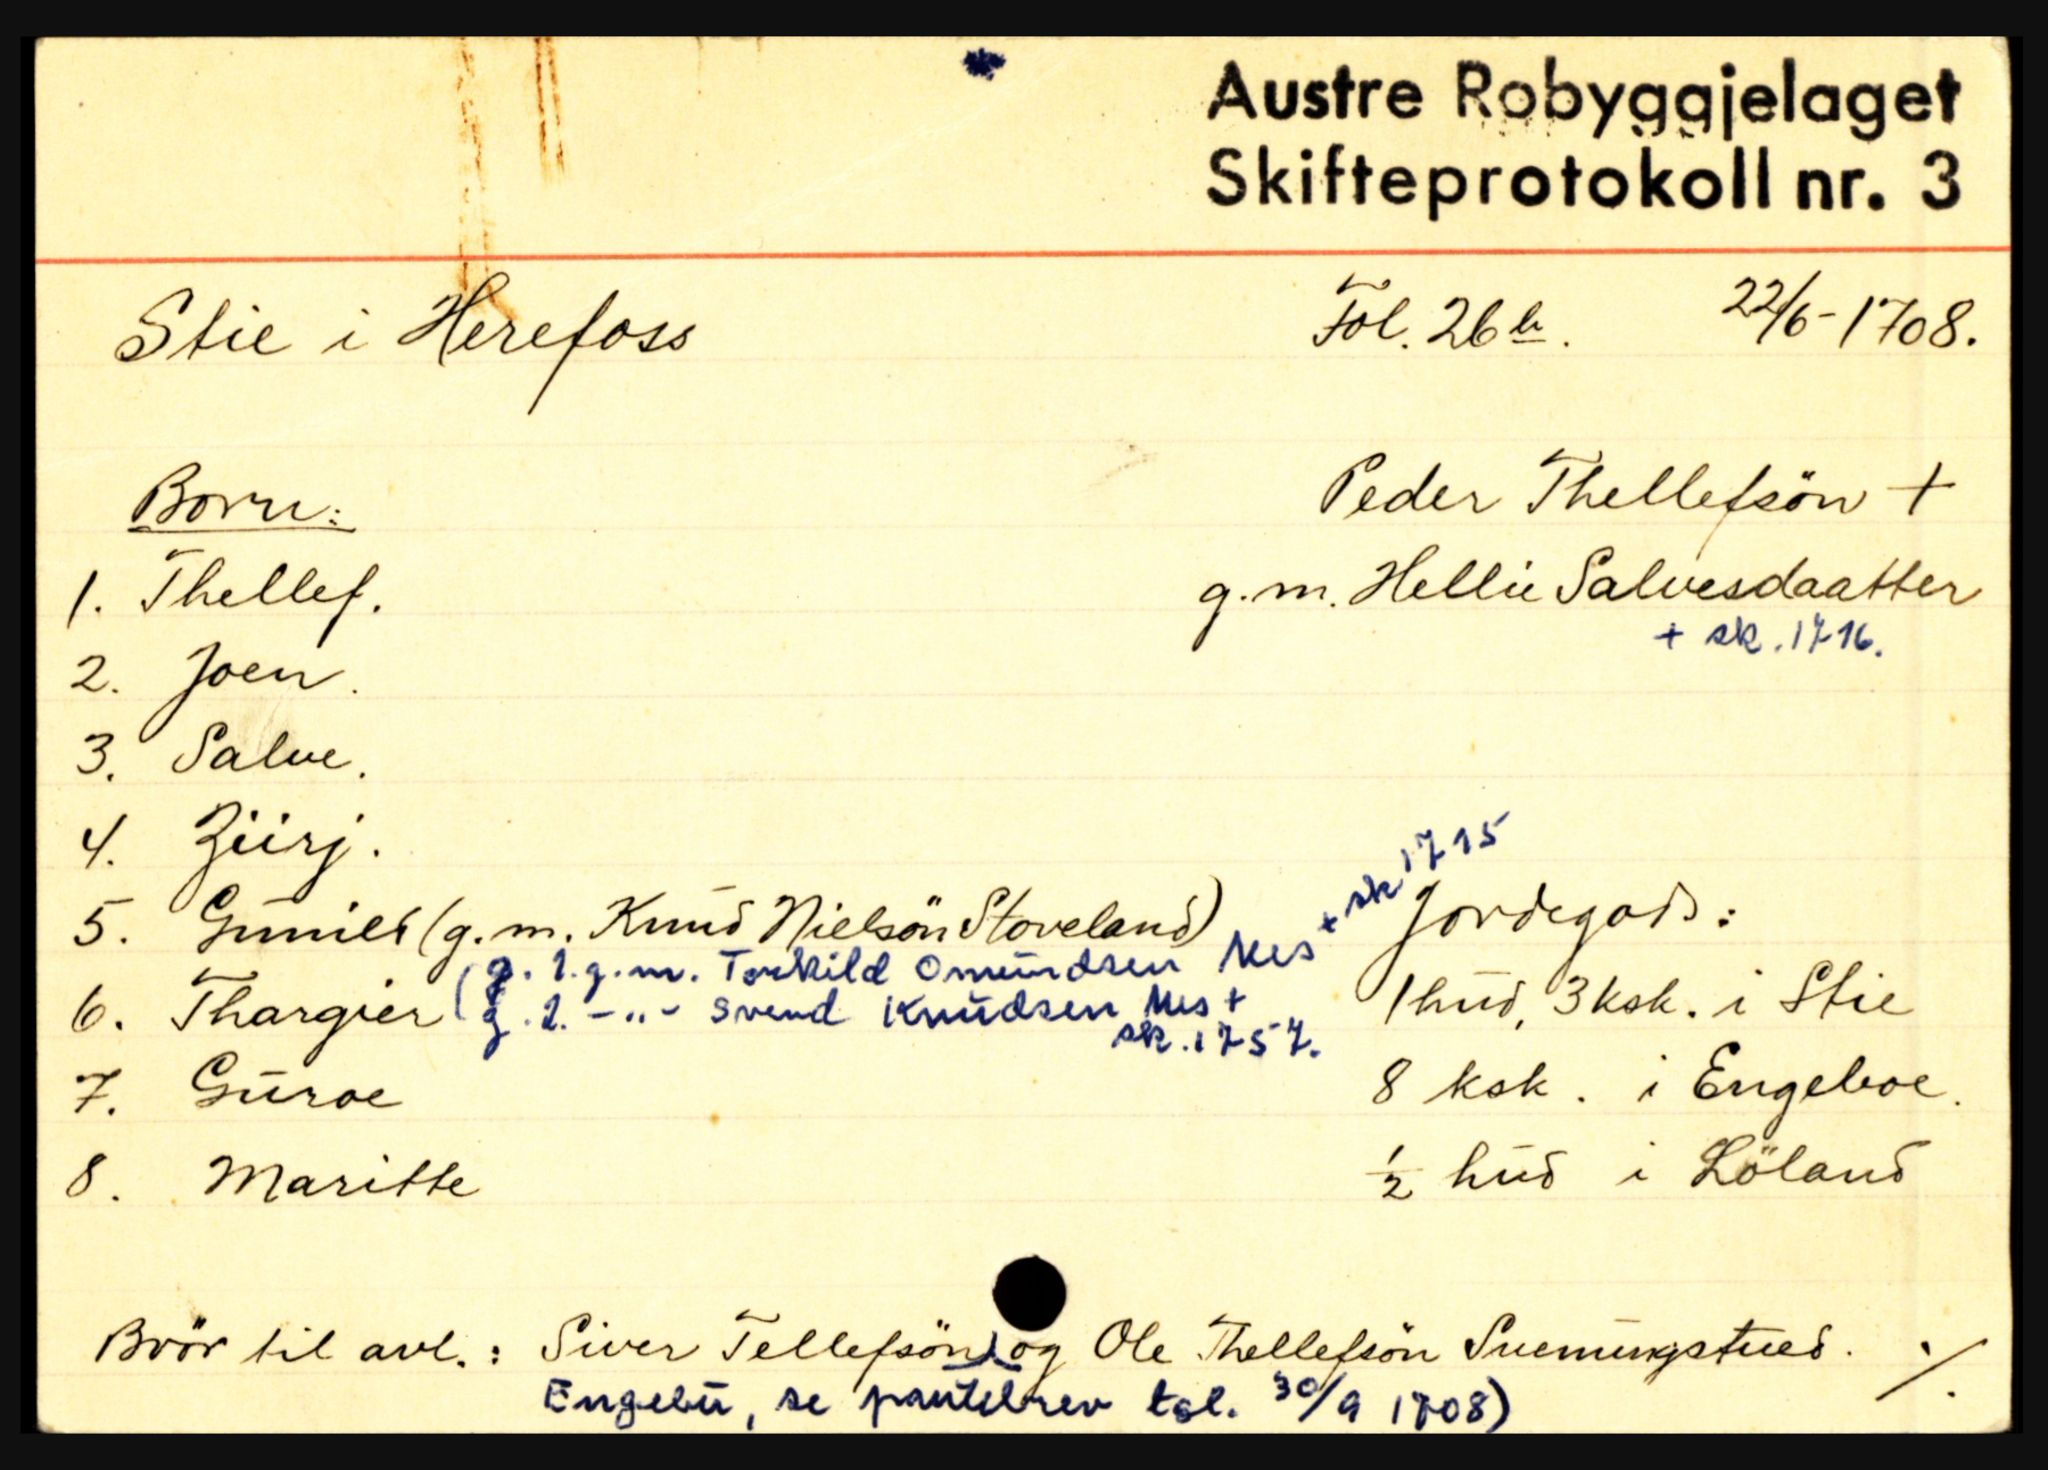 Austre Robyggjelaget
Skifteprotokoll nr. 3
Stie i Herefoss
Fol. 26 b. 22/6-1708.
Born:
Peder Thellefsön +
1. Thellef.
g.m. Hellie Salvesdaatter
+ sk. 1716.
2. Joen.
3. Salve.
4. Jiirj.
5. Gunild (g.m. Knud Nielsön Stoveland)
6. Thargier (g. 1. g.m. Torkild Omundsen Nes + sk 1715
g. 2. -"- Svend Knudsen Nes +
sk. 1757.
7. Guroe
8. Maritte
Jordegods:
1 hud, 3 ksk. i Stie
8 ksk. i Engeboe.
1/2 hud i Löland
Brör til avl.: Siver Tellefsön) og Ole Thellefsön Suenungstued. ./.
Engebu, se pantebrev tgl. 30/9 1708)